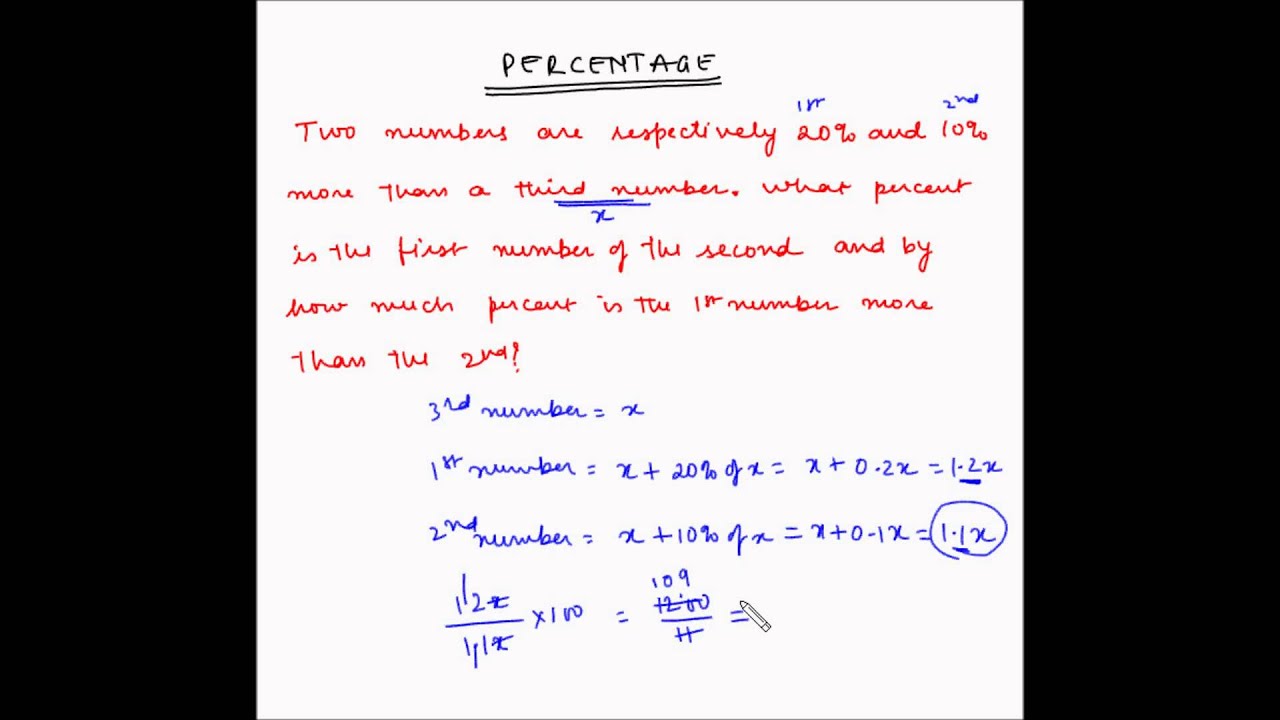 PERCENTAGE
1st 2nd
Two numbers are respectively 20% and 10%
more than a third number. What percent
x
is the first number of the second and by
how much percent is the 1st number more
than the 2nd?
3rd number = x
1st number = x + 20% of x = x + 0.2x = 1.2x
2nd number = x + 10% of x = x + 0.1x = 1.1x
109
12x/11x × 100 = 1200/11 =